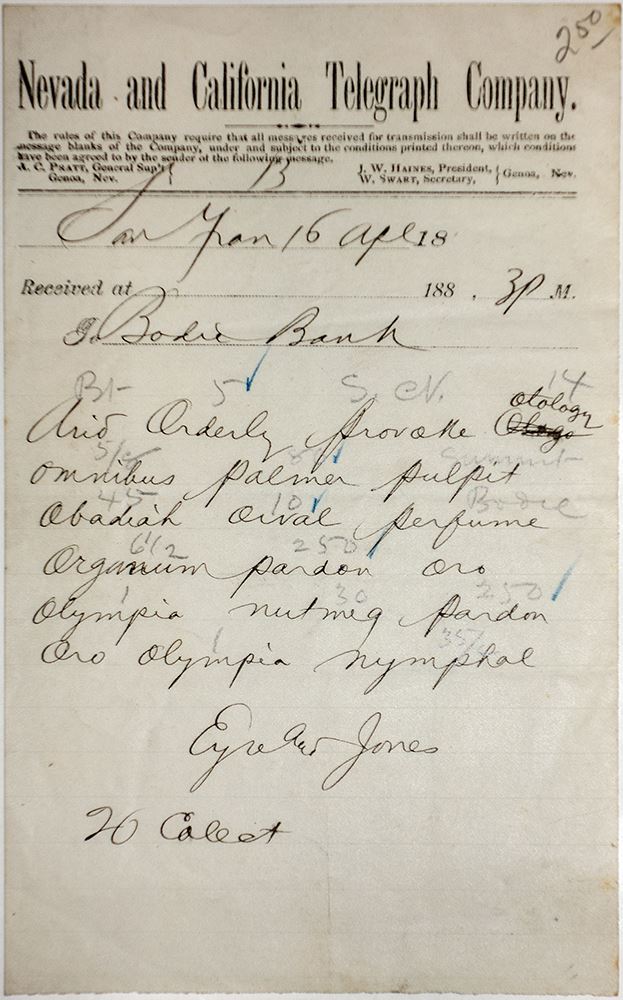 250
Nevada and California Telegraph Company.
The rules of this Company require that all messages received for transmission shall be written on the
message blanks of the Company, under and subject to the conditions printed thereon, which conditions
have been agreed to by the sender of the following message.
A. C. PRATT, General Sup't { J. W. HAINES, President, { Genoa, Nev.
Genoa, Nev. W. SWART, Secretary,
13
San Fran 16 Apl 18
Received at 188 . 3P M.
To Bodie Bank
Bt 5 S. N. 14
otology
Arid Orderly provoke
Summit
omnibus palmer pulpit
45 10 Bodie
Obadiah orval perfume
6 1/2 250
Organum pardon oro
1 30 250
Olympia nutmeg pardon
1 35
Oro Olympia nymphal
Eyre and Jones
20 Collect